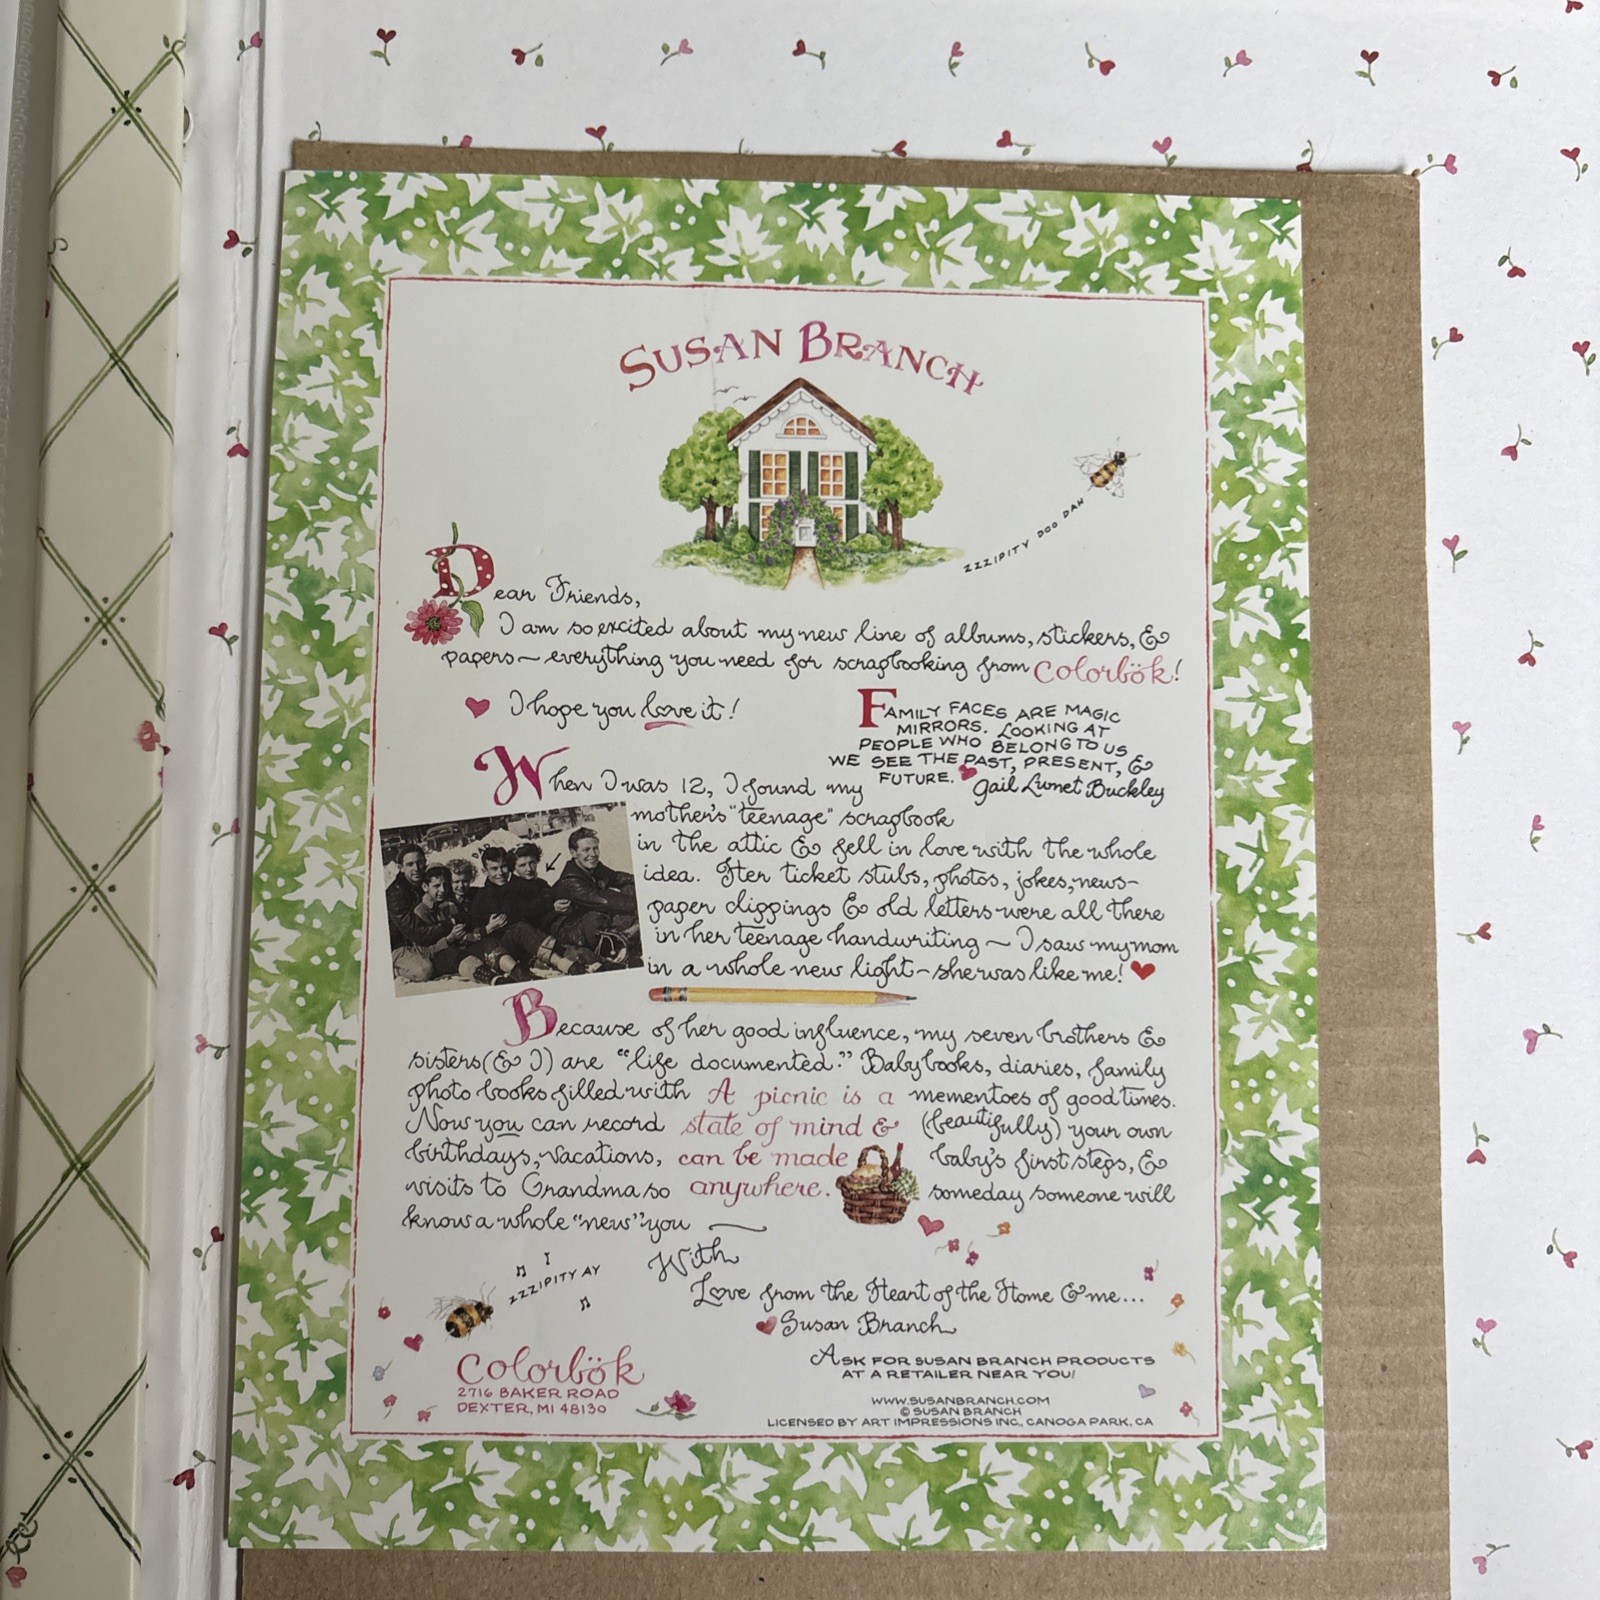 SUSAN BRANCH
ZZZIPITY DOO DAH
Dear Friends,
I am so excited about my new line of albums, stickers, &
papers~ everything you need for scrapbooking from Colorbök!
I hope you love it!
FAMILY FACES ARE MAGIC
MIRRORS. LOOKING AT
PEOPLE WHO BELONG TO US
WE SEE THE PAST, PRESENT, &
FUTURE. Gail Lumet Buckley
When I was 12, I found my
mother's "teenage" scrapbook
in the attic & fell in love with the whole
idea. Her ticket stubs, photos, jokes, news-
paper clippings & old letters were all there
in her teenage handwriting ~ I saw my mom
in a whole new light - she was like me!
Because of her good influence, my seven brothers &
sisters (& I) are "life documented." Baby books, diaries, family
photo books filled with mementoes of good times.
Now you can record (beautifully) your own
birthdays, vacations, baby's first steps, &
visits to Grandma so someday someone will
know a whole "new" you
A picnic is a
state of mind &
can be made
anywhere.
With
Love from the Heart of the Home & me...
Susan Branch
ZZZIPITY AY
Colorbök
2716 BAKER ROAD
DEXTER, MI 48130
ASK FOR SUSAN BRANCH PRODUCTS
AT A RETAILER NEAR YOU!
WWW.SUSANBRANCH.COM
© SUSAN BRANCH
LICENSED BY ART IMPRESSIONS INC., CANOGA PARK, CA